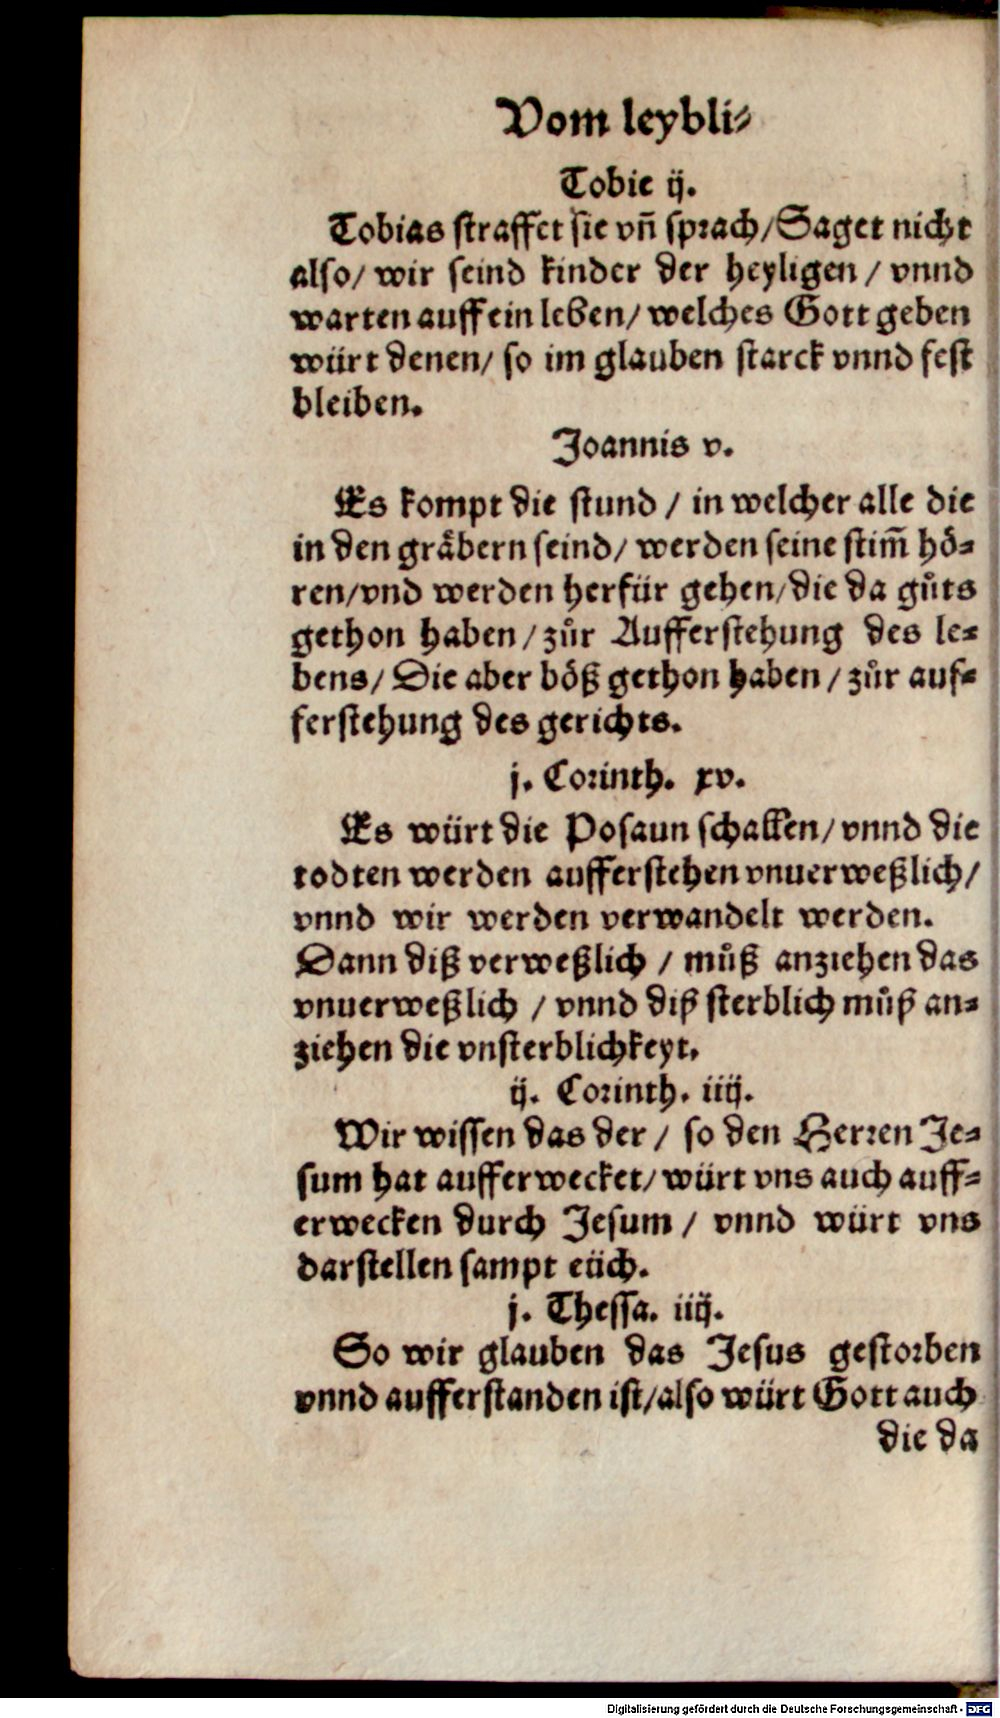 Vom leybli⸗
Tobie ij.
Tobias straffet sie vñ sprach/Saget nicht
also/ wir seind kinder der heyligen / vnnd
warten auff ein leben/ welches Gott geben
würt denen/ so im glauben starck vnnd fest
bleiben.
Joannis v.
Es kompt die stund / in welcher alle die
in den gräbern seind/ werden seine stim̃ hö⸗
ren/vnd werden herfür gehen/die da gůts
gethon haben / zůr Aufferstehung des le⸗
bens/ Die aber böß gethon haben / zůr auf⸗
ferstehung des gerichts.
j. Corinth. xv.
Es würt die Posaun schallen/ vnnd die
todten werden aufferstehen vnuerweßlich/
vnnd wir werden verwandelt werden.
Dann diß verweßlich / můß anziehen das
vnuerweßlich / vnnd diß sterblich můß an⸗
ziehen die vnsterblichkeyt.
ij. Corinth. iiij.
Wir wissen das der / so den Herren Je⸗
sum hat aufferwecket/ würt vns auch auff⸗
erwecken durch Jesum / vnnd würt vns
darstellen sampt eüch.
j. Thessa. iiij.
So wir glauben das Jesus gestorben
vnnd aufferstanden ist/also würt Gott auch
die da
Digitalisierung gefördert durch die Deutsche Forschungsgemeinschaft - DFG